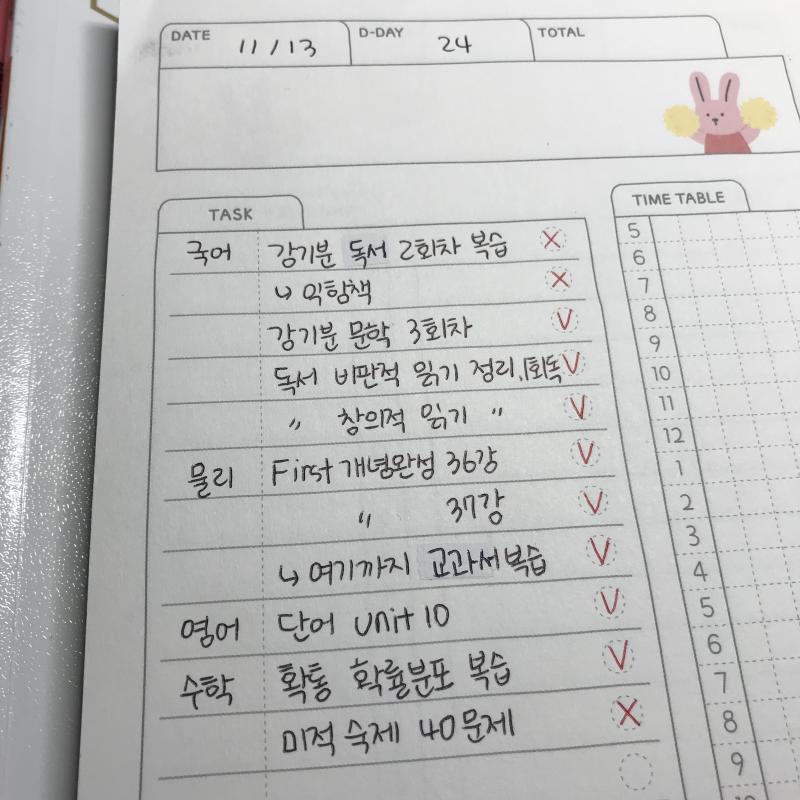 DATE 11/13 D-DAY 24 TOTAL
TASK
국어 강기분 독서 2회차 복습 X
↳ 익힘책 X
강기분 문학 3회차 V
독서 비판적 읽기 정리, 1회독 V
〃 창의적 읽기 〃 V
물리 First 개념완성 36강 V
〃 37강 V
↳ 여기까지 교과서 복습 V
영어 단어 unit 10 V
수학 확통 확률분포 복습 V
미적 숙제 40문제 X
TIME TABLE
5
6
7
8
9
10
11
12
1
2
3
4
5
6
7
8
9